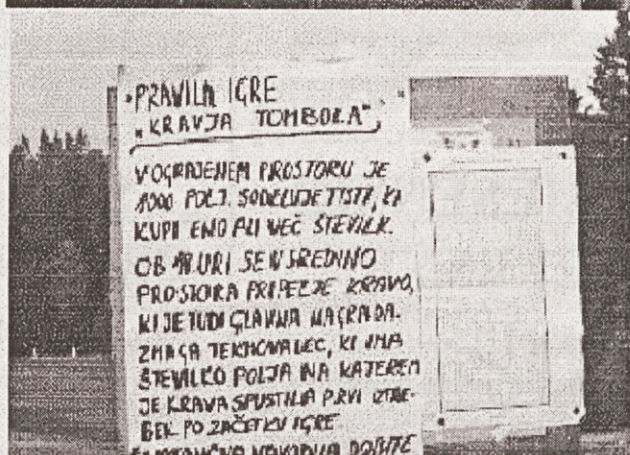 PRAVILA IGRE
"KRAVJA TOMBOLA"
V OGRAJENEM PROSTORU JE
1000 POLJ. SODELUJE TISTI, KI
KUPI ENO ALI VEČ ŠTEVILK.
OB URI SE V SREDINO
PROSTORA PRIPELJE KRAVO,
KI JE TUDI GLAVNA NAGRADA.
ZMAGA TEKMOVALEC, KI IMA
ŠTEVILKO POLJA NA KATEREM
JE KRAVA SPUSTILA PRVI IZTRE-
BEK PO ZAČETKU IGRE.
NAVODILA DOBITE